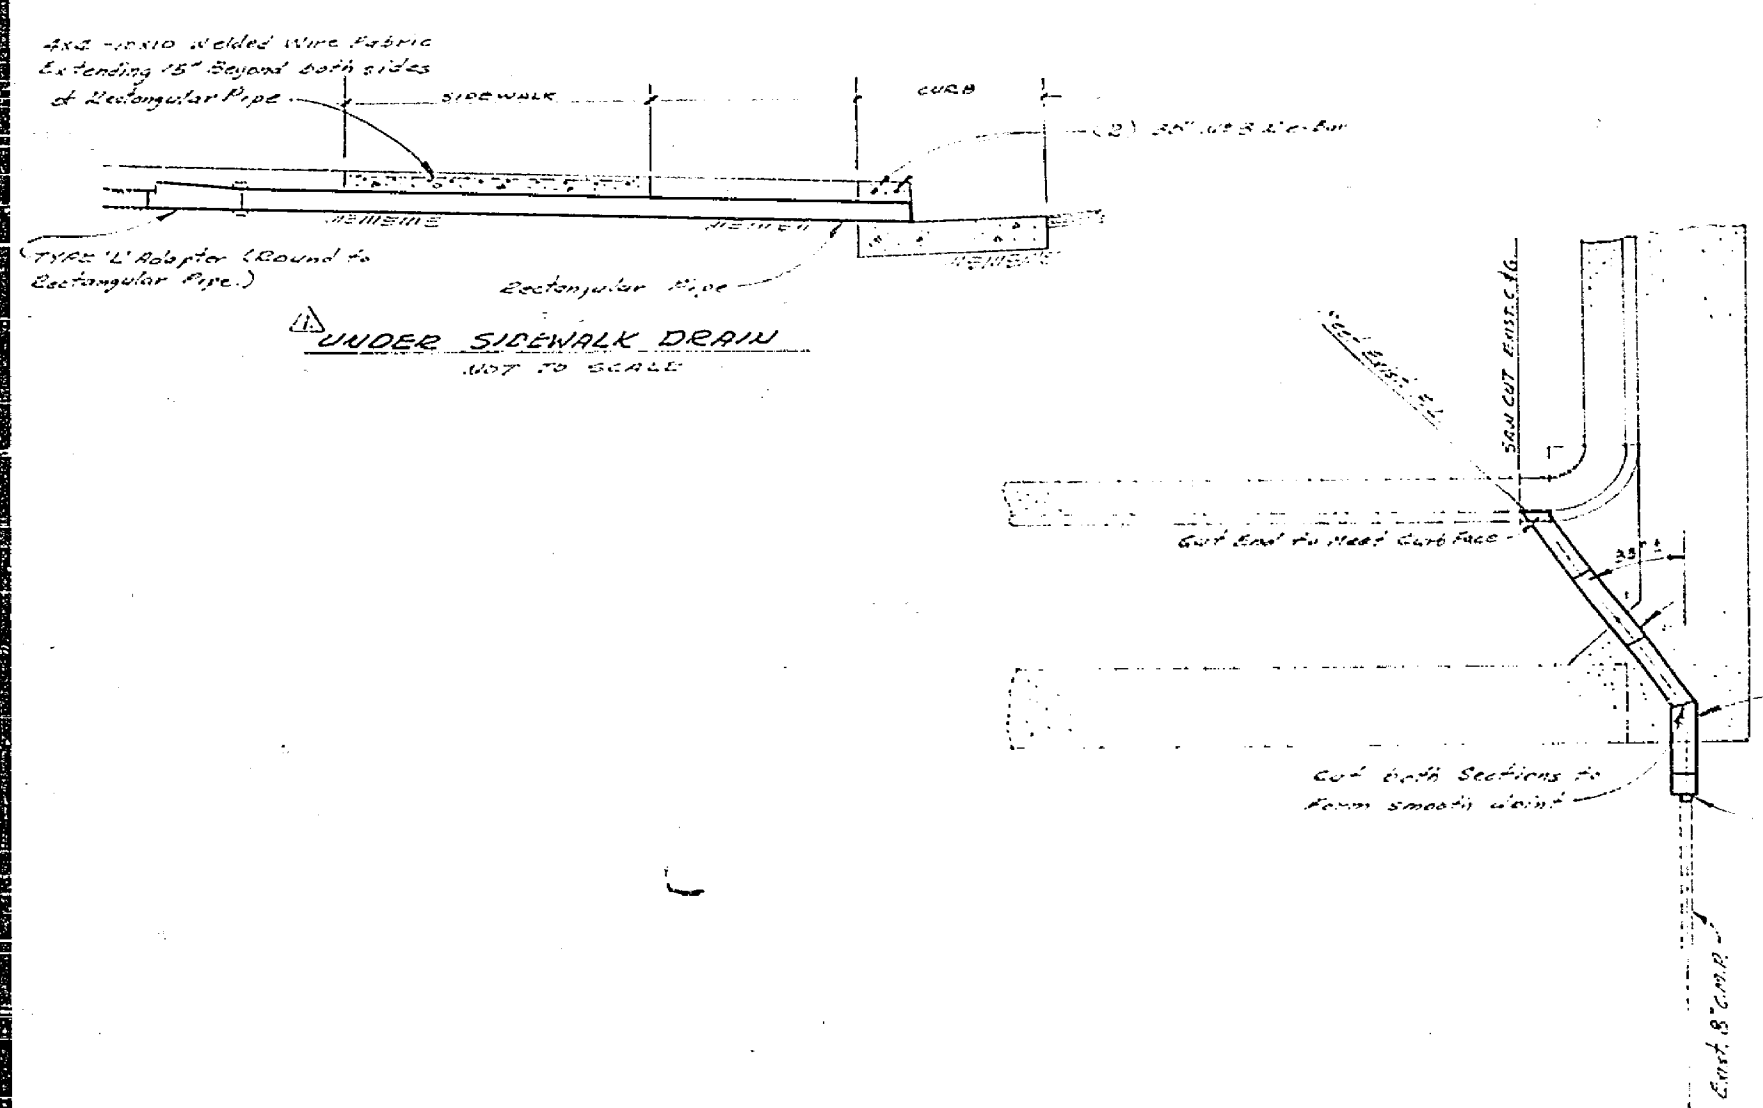 4x4 -10x10 Welded Wire Fabric
Extending 15" Beyond both sides
of Rectangular Pipe
SIDEWALK
CURB
(2) Re-Bar
TYPE 'L' Adapter (Round to
Rectangular Pipe.)
Rectangular Pipe
1
UNDER SIDEWALK DRAIN
NOT TO SCALE
SAW CUT EXIST. C & G.
Exist.
Cut End to Meet Curb Face
Cut both Sections to
Form smooth Joint
Exist. 8" C.M.P.